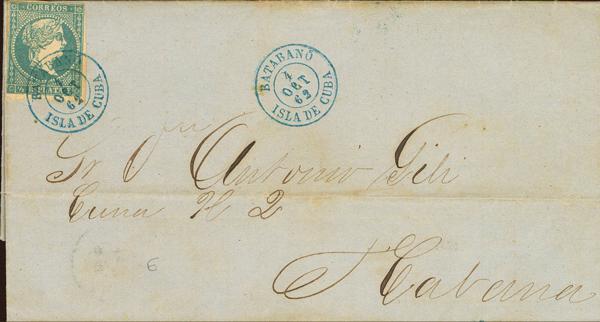 CORREOS
½ R. PLATA F.
BATABANÓ
4
OCT
62
ISLA DE CUBA
BATABANÓ
4
OCT
62
ISLA DE CUBA
Sr. D. Antonio Gili
Cuna N 2
Habana
6